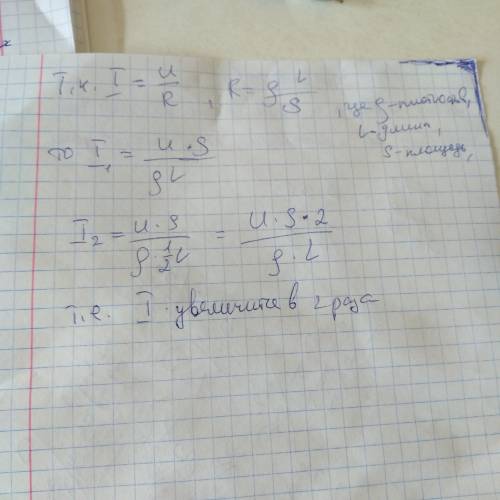 Т.к. I = U/R, R = ρ L/S, где ρ-плотность,
L-длина,
S-площадь,
то I₁ = U·S/ρL
I₂ = U·S/ρ·½L = U·S·2/ρ·L
т.е. I увеличится в 2 раза